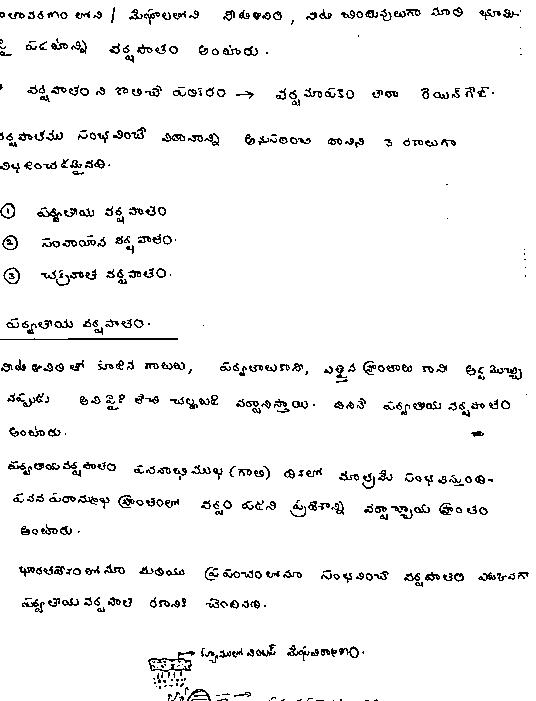 వాతావరణం లోని / మేఘాలలోని నీటిఆవిరి, నీటి బిందువులుగా మారి భూమి-
పై పడటాన్ని వర్షపాతం అంటారు.
వర్షపాతం ని కొలిచే పరికరం → వర్షమాపకం లేదా రెయిన్ గేజ్.
వర్షపాతము సంభవించే విధానాన్ని అనుసరించి దానిని 3 రకాలుగా
విభజించడమైనది.
① పర్వతీయ వర్షపాతం
② సంవాహన వర్షపాతం.
③ చక్రవాత వర్షపాతం.
పర్వతీయ వర్షపాతం.
నీటి ఆవిరి తో కూడిన గాలులు, పర్వతాలుకాని, ఎత్తైన ప్రాంతాలు కాని అడ్డ వచ్చి
నప్పుడు అవి పైకి లేచి చల్లబడి వర్షాన్నిస్తాయి. దీనినే పర్వతీయ వర్షపాతం
అంటారు.
పర్వతీయ వర్షపాతం పవనాభిముఖ (గాలి) దిశలో మాత్రమే సంభవిస్తుంది.
పవన పరాన్ముఖ ప్రాంతంలో వర్షం పడని ప్రదేశాన్ని వర్షాచ్ఛాయ ప్రాంతం
అంటారు.
భారతదేశంలోనూ మరియు ప్రపంచంలోనూ సంభవించే వర్షపాతం ఎక్కువగా
పర్వతీయ వర్షపాత రకానికి చెందినది.